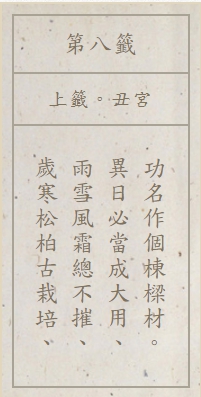 第八籤
上籤。丑宮
歲寒松柏古栽培、
雨雪風霜總不摧、
異日必當成大用、
功名作個棟樑材。